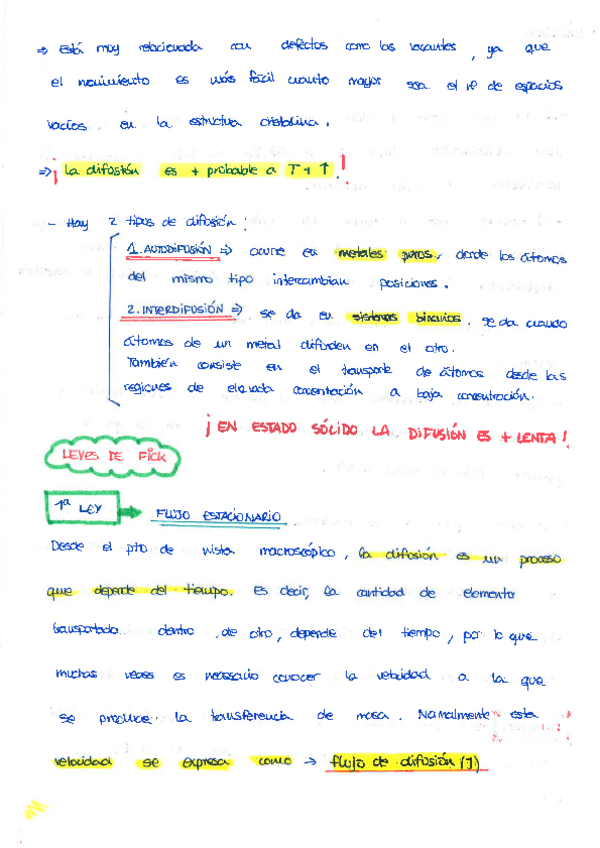 ⇒ Está muy relacionada con defectos como las vacantes, ya que
el movimiento es más fácil cuanto mayor sea el nº de espacios
vacíos en la estructura cristalina.
⇒ ¡La difusión es + probable a T + ↑!
- Hay 2 tipos de difusión:
1. AUTODIFUSIÓN ⇒ ocurre en metales puros, donde los átomos
del mismo tipo intercambian posiciones.
2. INTERDIFUSIÓN ⇒ se da en sistemas binarios. se da cuando
átomos de un metal difunden en el otro.
También consiste en el transporte de átomos desde las
regiones de elevada concentración a baja concentración.
¡EN ESTADO SÓLIDO LA DIFUSIÓN ES + LENTA!
LEYES DE FICK
1ª LEY → FLUJO ESTACIONARIO
Desde el pto de vista macroscópico, la difusión es un proceso
que depende del tiempo. Es decir, la cantidad de elemento
transportado dentro de otro, depende del tiempo, por lo que
muchas veces es necesario conocer la velocidad a la que
se produce la transferencia de masa. Normalmente esta
velocidad se expresa como → flujo de difusión (J)